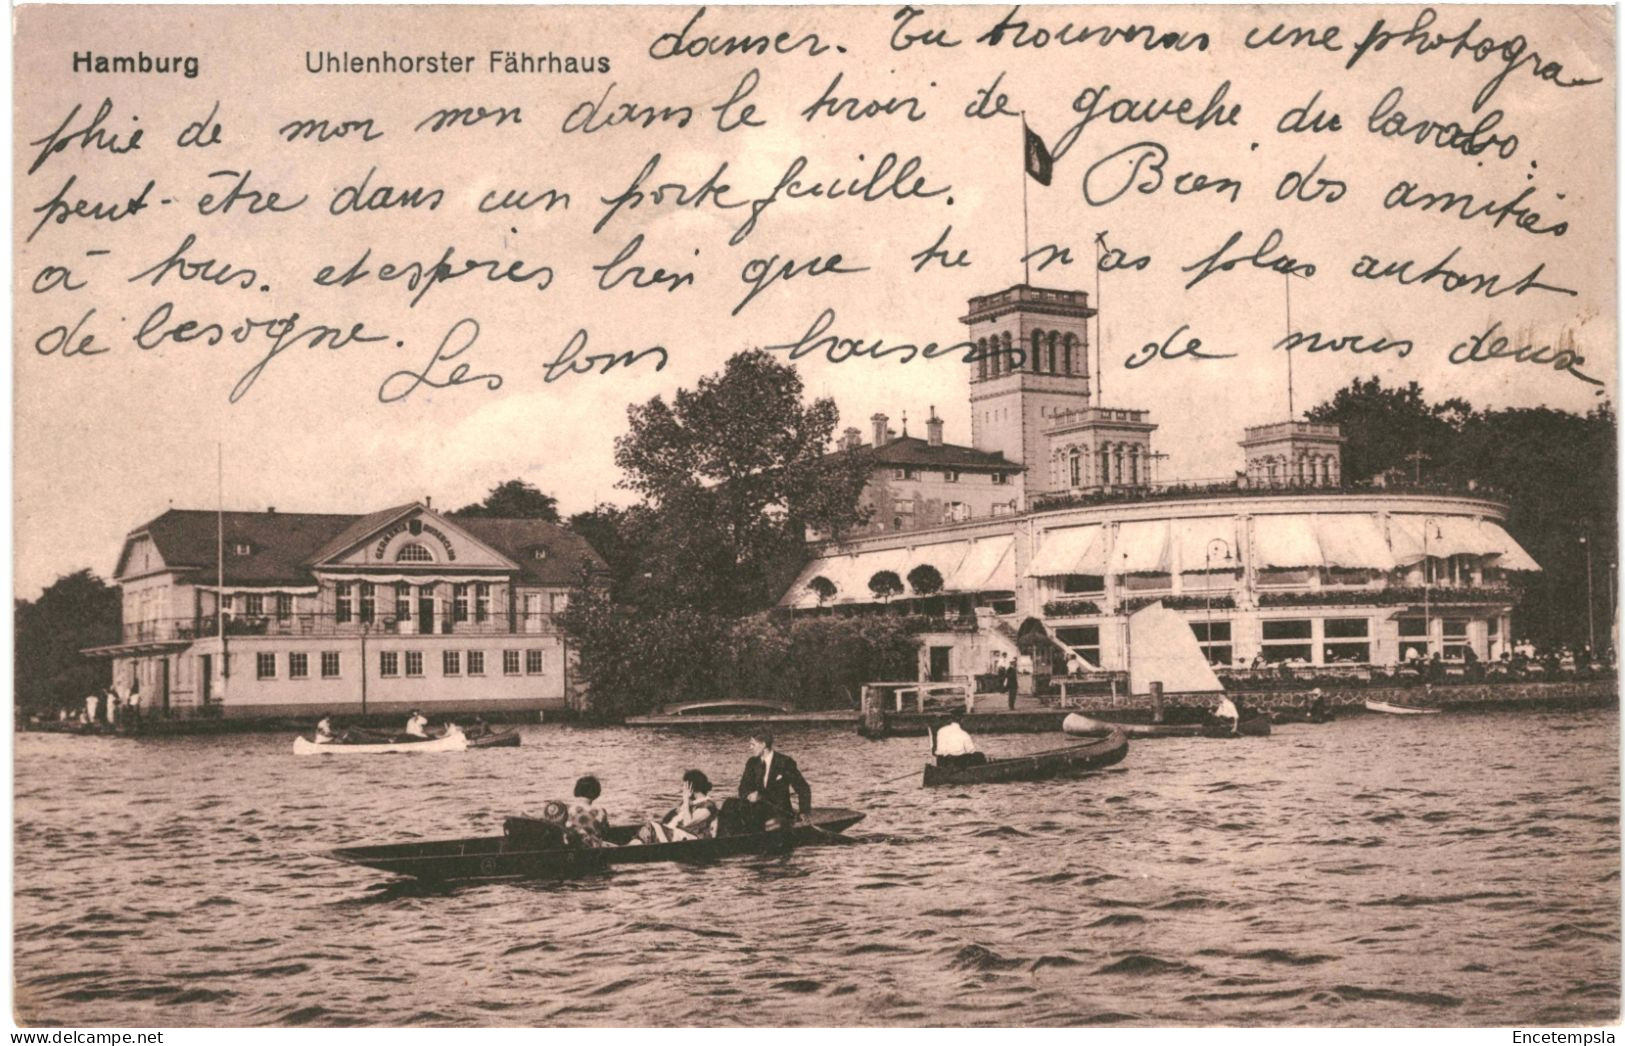 Hamburg Uhlenhorster Fährhaus danser. Tu trouveras une photogra-
phie de mon mon dans le tiroir de gauche du lavabo.
peut-être dans un porte feuille. Bien des amitiés
à tous. et espères bien que tu n'as plus autant
de besogne. Les bons baisers de nous deux
GERMANIA
Encetempsla